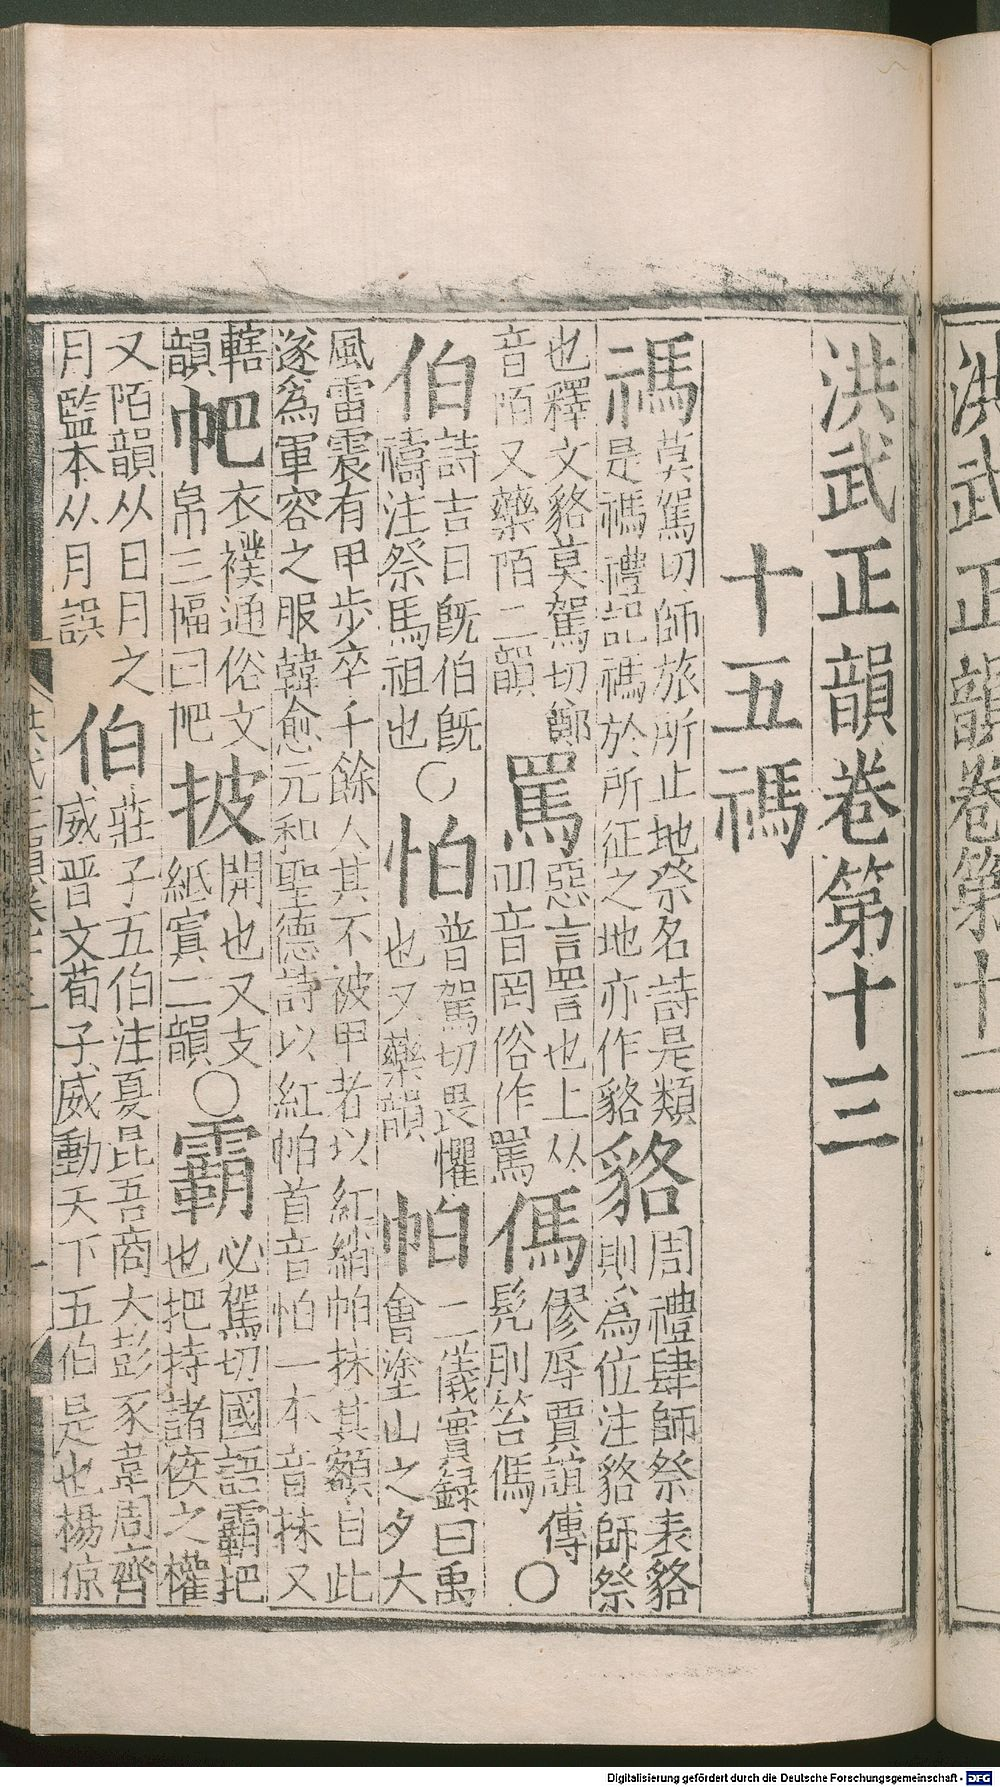 洪武正韻卷第十三
十五禡
禡莫駕切師旅所止地祭名詩是類是禡禮記禡於所征之地亦作貉貉周禮肆師祭表貉則為位注貉師祭
也釋文貉莫駕切鄭音陌又藥陌二韻罵惡言詈也上从吅音罔俗作罵傌僇辱賈誼傳髡刖笞傌〇
伯詩吉日既伯既禱注祭馬祖也〇怕普駕切畏懼也又藥韻帕二儀實録曰禹會塗山之夕大
風雷震有甲步卒千餘人其不被甲者以紅綃帕抹其額自此遂為軍容之服韓愈元和聖德詩以紅帕首音怕一本音抹又
轄韻帊衣襆通俗文帛三幅曰帊披開也又支紙寘二韻〇霸必駕切國語霸把也把持諸侯之權
又陌韻从月月之月監本从月誤伯莊子五伯注夏昆吾商大彭豕韋周齊威晋文荀子威動天下五伯是也楊倞
洪武正韻
Digitalisierung gefördert durch die Deutsche Forschungsgemeinschaft - DFG